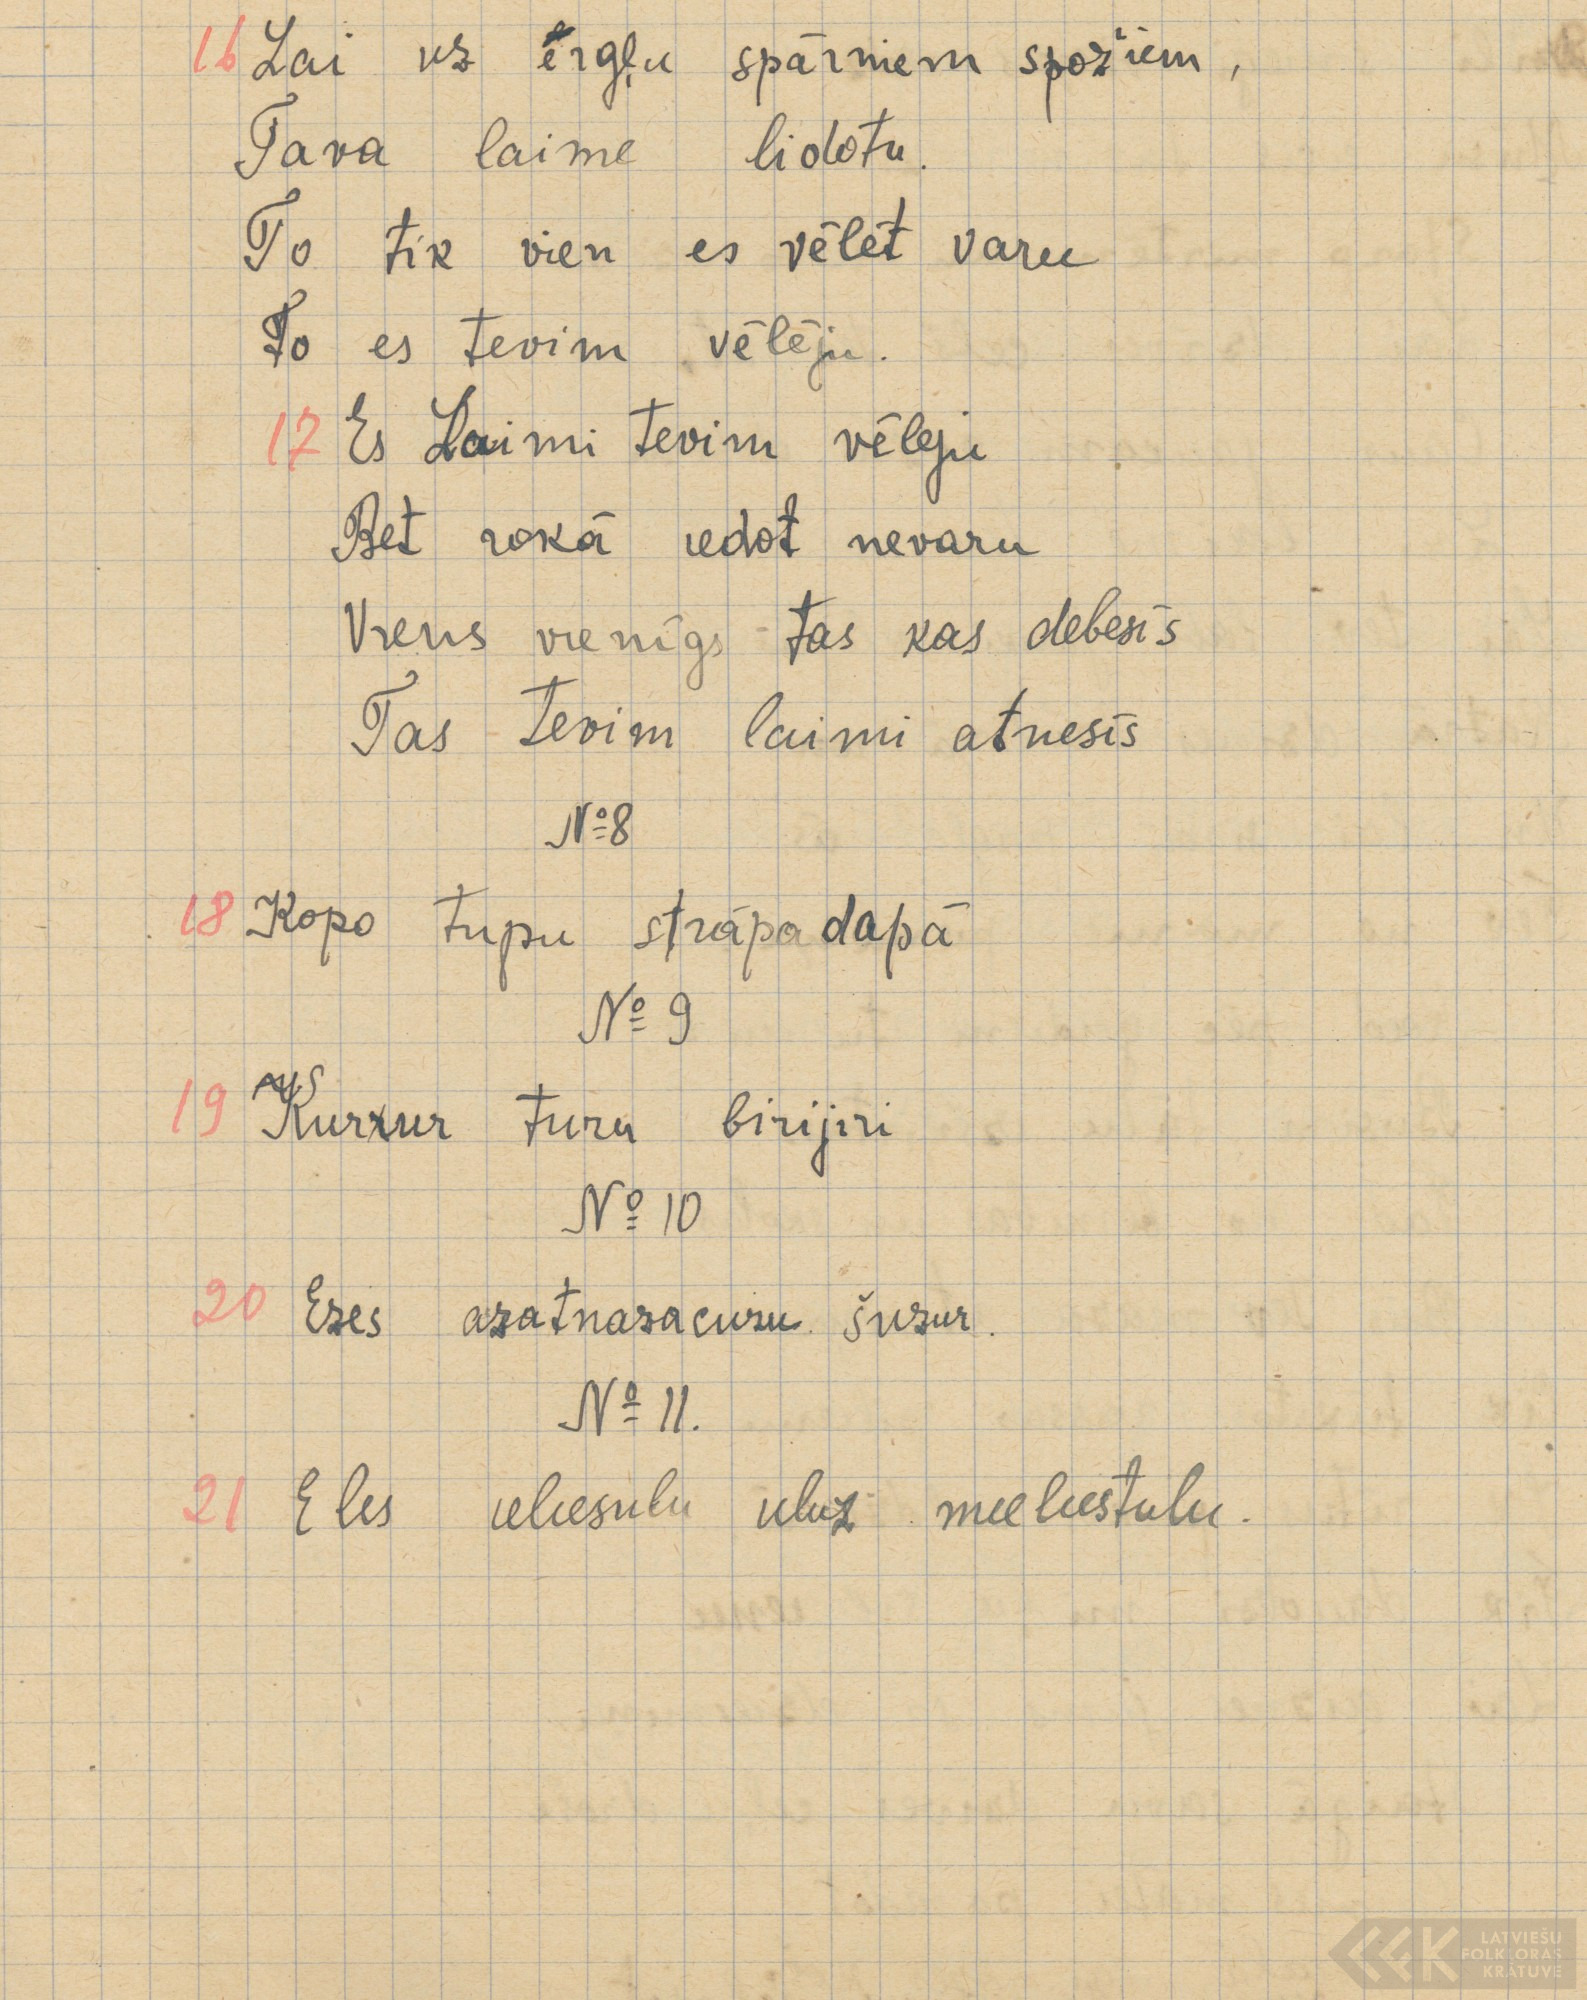 16 Lai uz ērgļu spārniem spožiem,
Tava laime lidotu.
To tik vien es vēlēt varu
To es tevim vēlēju.
17 Es Laimi tevim vēleju
Bet rokā iedot nevaru
Viens vienīgs tas kas debesīs
Tas tevim laimi atnesīs
№8
18 Kopo tupu strāpa dapā
№ 9
19 Kurrur turu birijiri
№ 10
20 Ezes azatnazacuzu šuzur.
№ 11.
21 Eles
LATVIEŠU
FOLKLORAS
KRĀTUVE